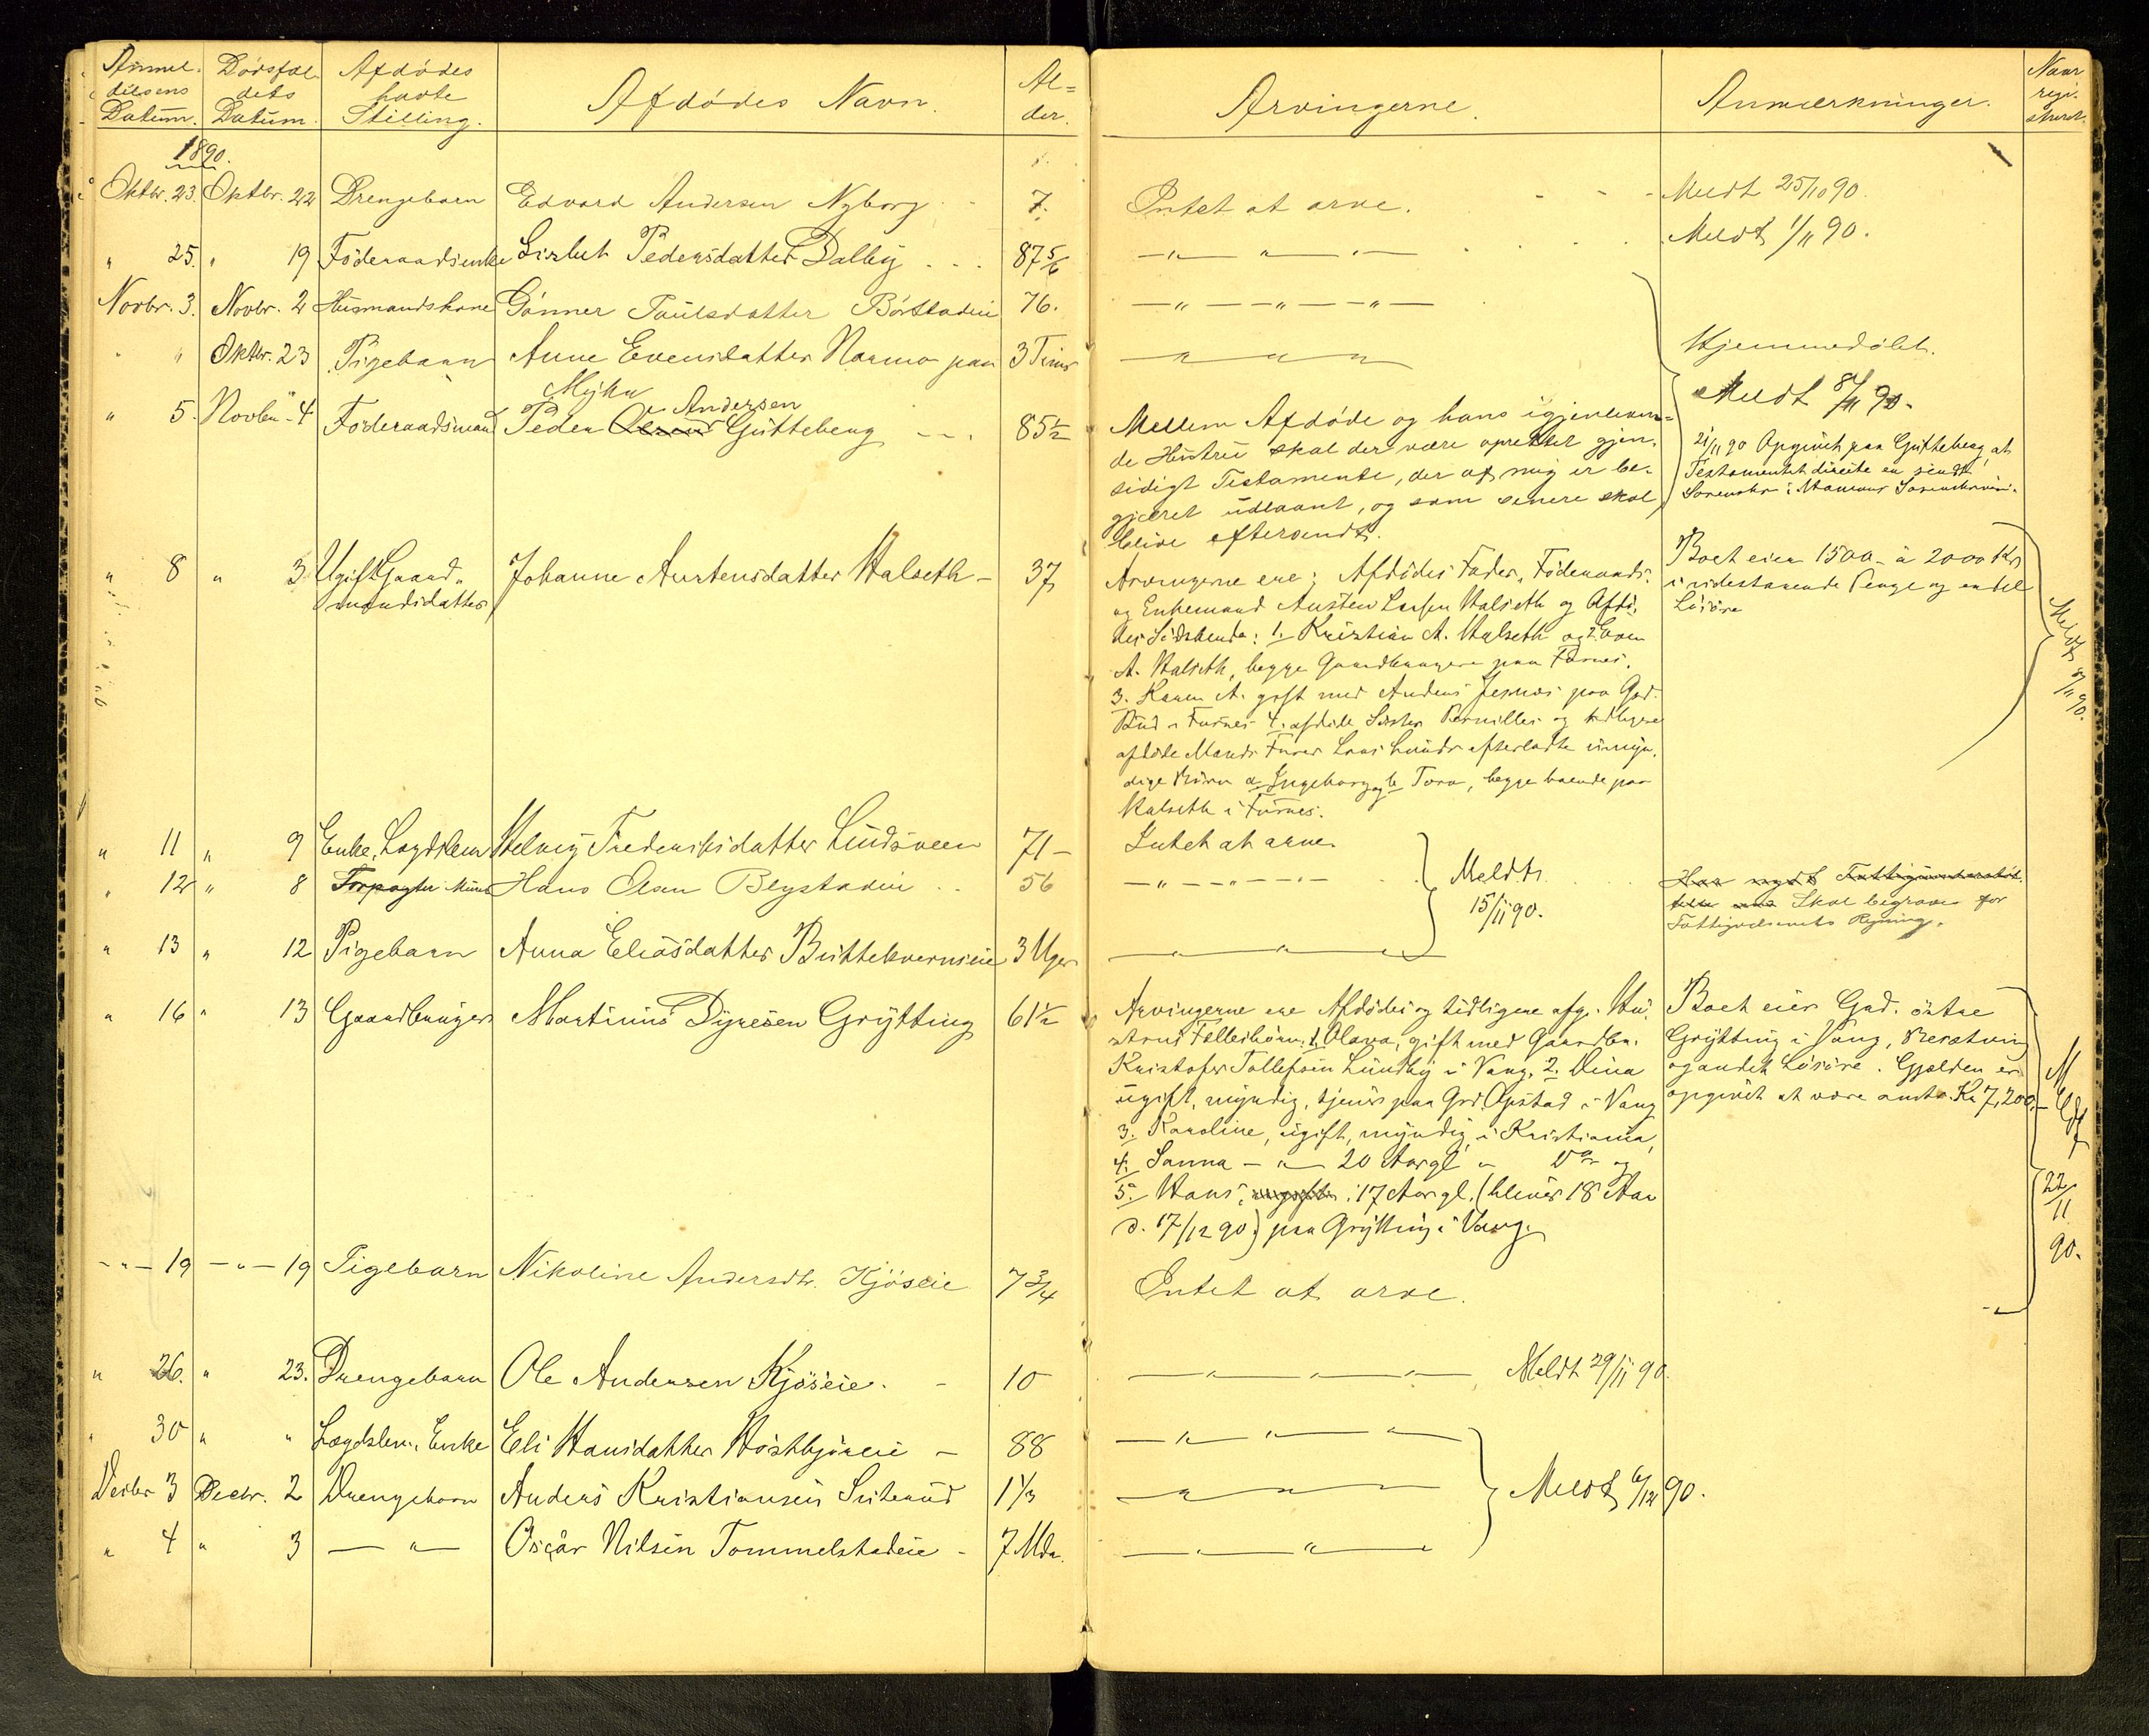 Anmel- Dødsfal- Afdødes
delsens dets havte Afdødes Navn. Al= Arvingerne. Anmærkninger. Naar
Datum. Datum. Stilling. der. regi-
streret.
1890.
Oktbr. 23. Oktbr. 22 Drengebarn Edvard Andersen Nyborg - 7. Intet at arve. - - - Meldt 25/10 90.
" 25. " 19 Föderaadsenke Lisbet Pedersdatter Dalby ... 87 5/6 — " — " — " — Meldt 1/11 90.
Novbr. 3. Novbr. 2 Husmandskone Gönner Paulsdatter Börstadeie 76. — " — " — " —
" " Oktbr. 23 Pigebarn Anne Evensdatter Narmo paa 3 Timer — " — " — " — Hjemmedøbt.
Myhr
Meldt 8/11 90.
" 5. Novbr. 4 Föderaadsmand Peder Andersen Gütteberg - - . 85 1/2 Mellem Afdøde og hans igjenleven=
de Hustru skal der være oprettet gjen-
sidigt Testamente, der af mig er be-
gjæret udlaant, og som senere skal
blive eftersendt.
21/11 90 Opgivet paa Gütteberg, at
Testamentet direkte er sendt
Sorenskr. i
" 8 " 3 Ugift Gaard-
mandsdatter Johanne Austensdatter Halseth - 37 Arvingerne ere: Afdødes Fader, Föderaads-
og Enkemand Austen Larsen Halseth og Afdö-
des Södskende: 1. Kristian A. Halseth og 2. Even
A. Halseth, begge Gaardbrugere paa Furnes.
3. Karen A. gift med Anders Jesnes paa Gad.
i Furnes 4. afdöde Söster Pernilles og tidligere
afdöde Mands Lars Lunds efterladte umyn-
dige Börn a Ingeborg og b Tora, begge boende paa
Halseth i Furnes.
Boet eier 1500 - à 2000 Kr.
i udestaaende Penge og endel
Lösöre
Meldt 8/11 90.
" 11 " 9 Enke, Lægdslem Helvig Frederiksdatter Lindsveen 71 - Intet at arve.
" 12 " 8 Hans Olsen Blystadeie .. 56 — " — " — " — Meldt
15/11 90.
Har nydt Fattigunderstöt-
telse Skal begraves for
Fattigvæsenets Regning.
" 13 " 12 Pigebarn Anna Eliasdatter Buttekverneie 3 Uger — " — " — " —
" 16 " 13 Gaardbruger Martinus Dyresen Grytting 61 1/2 Arvingerne ere Afdødes og tidligere afg. Hu-
strus Fællesbörn: 1. Olava, gift med Gaardbr.
Kristofer Tollefsen Lundby i Vang, 2. Dina
ugift, myndig, tjener paa Grd. Opstad i Vang
3. Karoline, ugift, myndig, i Kristiania,
4. Sanna — " — 20 Aar gl. " Do og
5. Hans, 17 Aar gl. (bliver 18 Aar
d. 17/12 90) paa Grytting i Vang.
Boet eier Grd. östre
Grytting i Vang, Besætning
og andet Lösöre. Gjælden er
opgivet at være omtr. Kr 7,200.
Meldt
22/11
90.
— " — 19 — " — 19 Pigebarn Nikoline Andersdtr. Kjöseie 7 3/4 Intet at arve.
" 26. " 23. Drengebarn Ole Andersen Kjöseie. - 10 — " — " — " — Meldt 29/11 90.
" 30 " " Lægdslem, Enke Eli Hansdatter Höstbjöreie - 88 — " — " — " —
Decbr 3 Decbr. 2 Drengebarn Anders Kristiansen Suterud 1 1/3 — " — " — " — Meldt 6/12 90.
" 4 " 3 — " — Oscår Nilsen Tommelstadeie - 7 Mdr. — " — " — " —